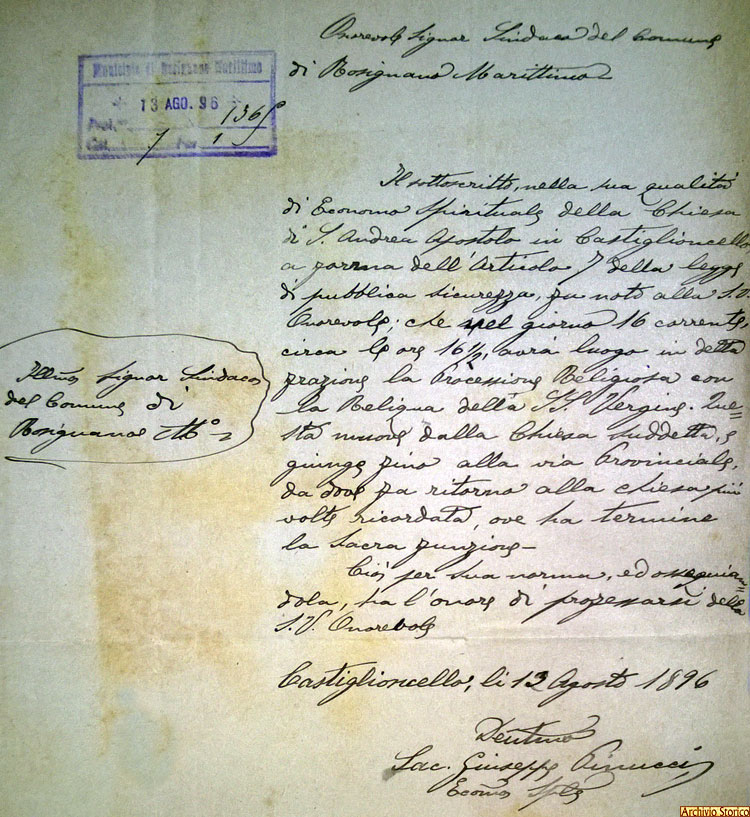 Onorevole Signor Sindaco del Comune
di Rosignano Marittimo
Municipio di Rosignano Marittimo
13 AGO. 96
Prot. N. 1365
Cat. 7 Fas 1
Il sottoscritto, nella sua qualità
di Economo Spirituale della Chiesa
di S. Andrea Apostolo in Castiglioncello,
a forma dell'Articolo 7 della legge
di pubblica sicurezza, fa noto alla S.V.
Onorevole; che nel giorno 16 corrente
circa le ore 16½, avrà luogo in detta
frazione la Processione Religiosa con
la Reliqua della SS. Vergine. Que=
sta muove dalla Chiesa suddetta, e
giunge fino alla via Provinciale,
da dove fa ritorno alla chiesa più
volte ricordata, ove ha termine
la Sacra funzione—
Ciò per sua norma, ed ossequian=
dola, ha l'onore di professarsi della
S.V. Onorevole
Illmo Signor Sindaco
del Comune di
Rosignano Mo
Castiglioncello, li 13 Agosto 1896
Devtmo
Sac. Giuseppe Pinucci
Econo Sple
Archivio Storico